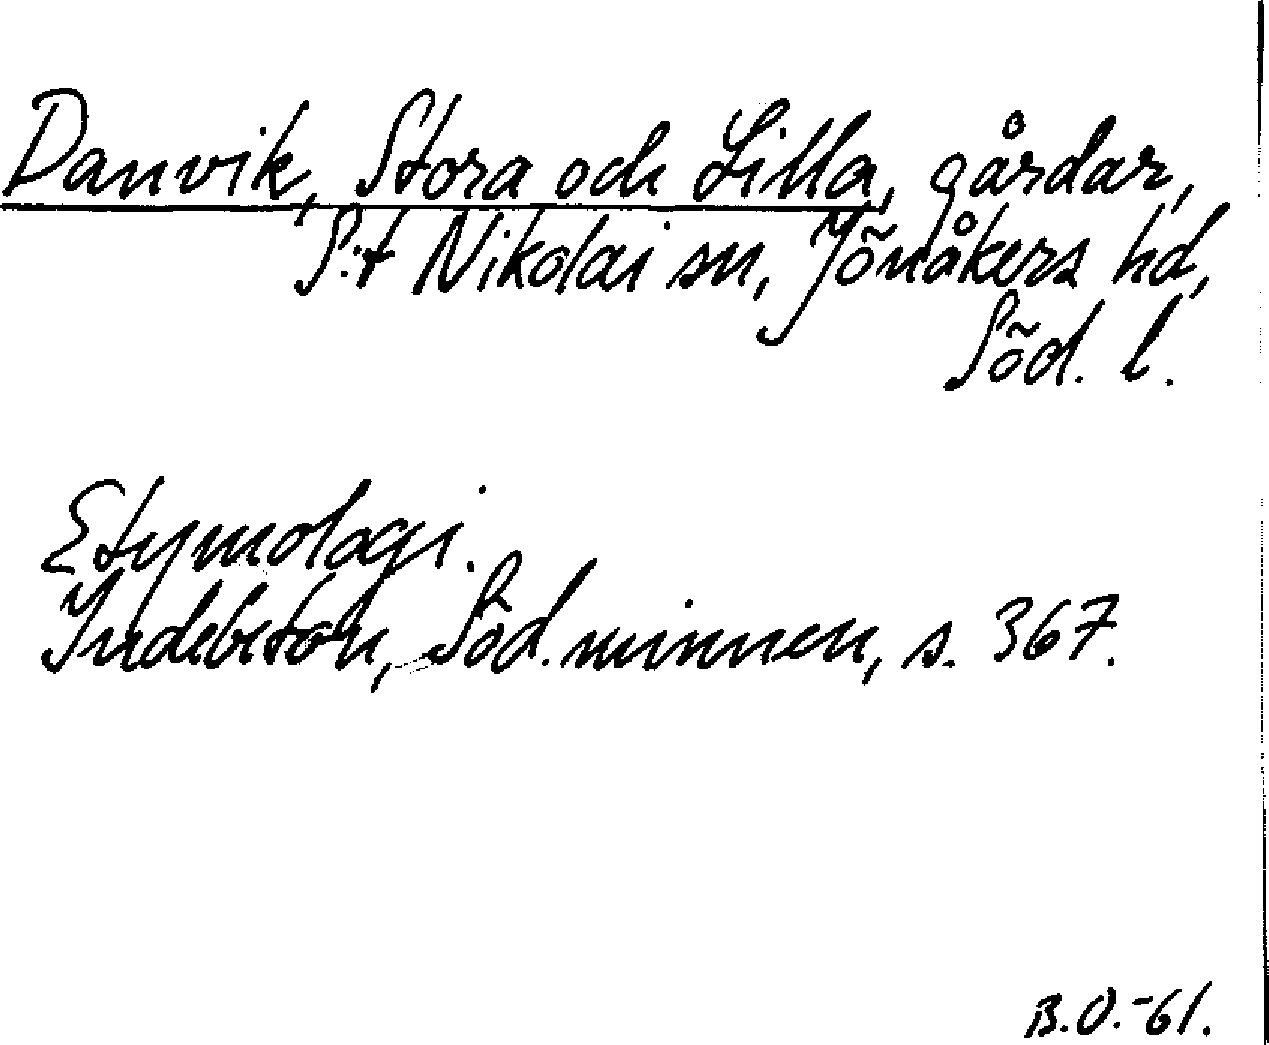 Danvik, Stora och Lilla, gårdar,
S:t Nikolai sn, Jönåkers hd,
Söd. l.
Etymologi.
Indebetou, Söd. minnen, s. 367.
B.O.-61.